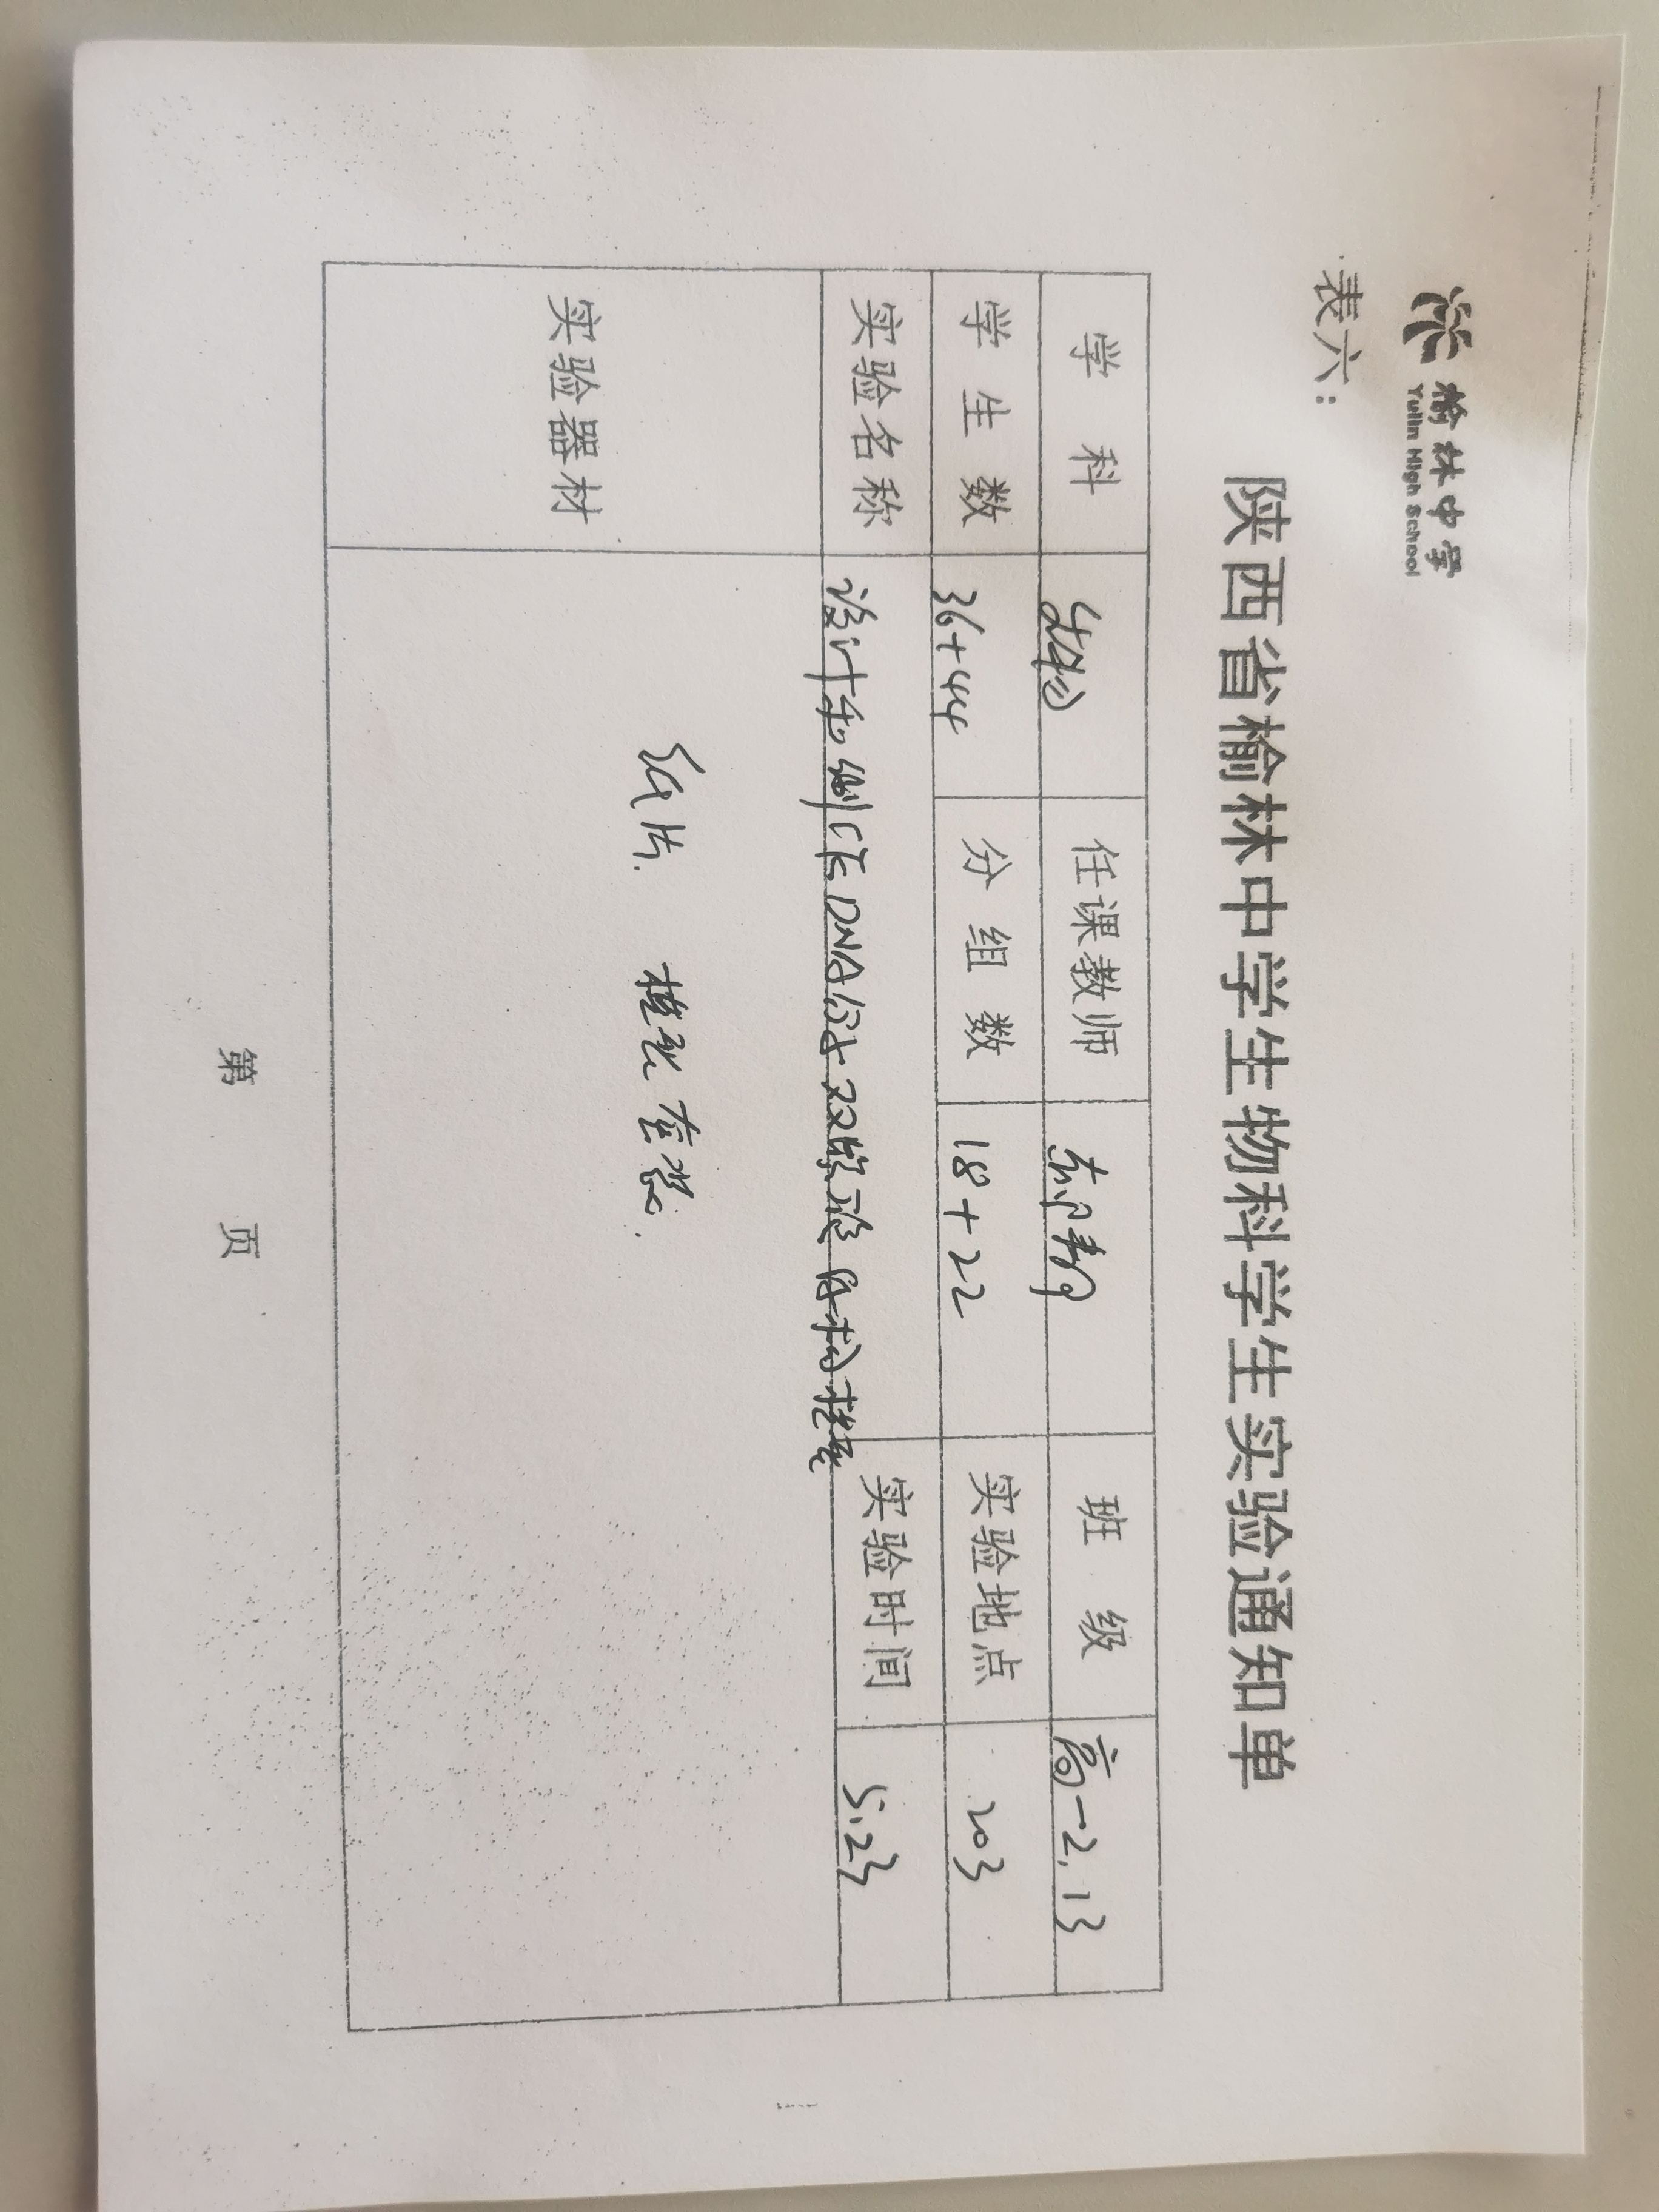 榆林中学
Yulin High School
表六：
陕西省榆林中学学生物科学生实验通知单
学 科 生物 任课教师 班 级 高一2,13
学 生 数 36+44 分 组 数 18+22 实验地点 203
实验名称 设计和制作DNA分子双螺旋结构模型 实验时间 5.23
实验器材 纸片. 模型套装.
第 页